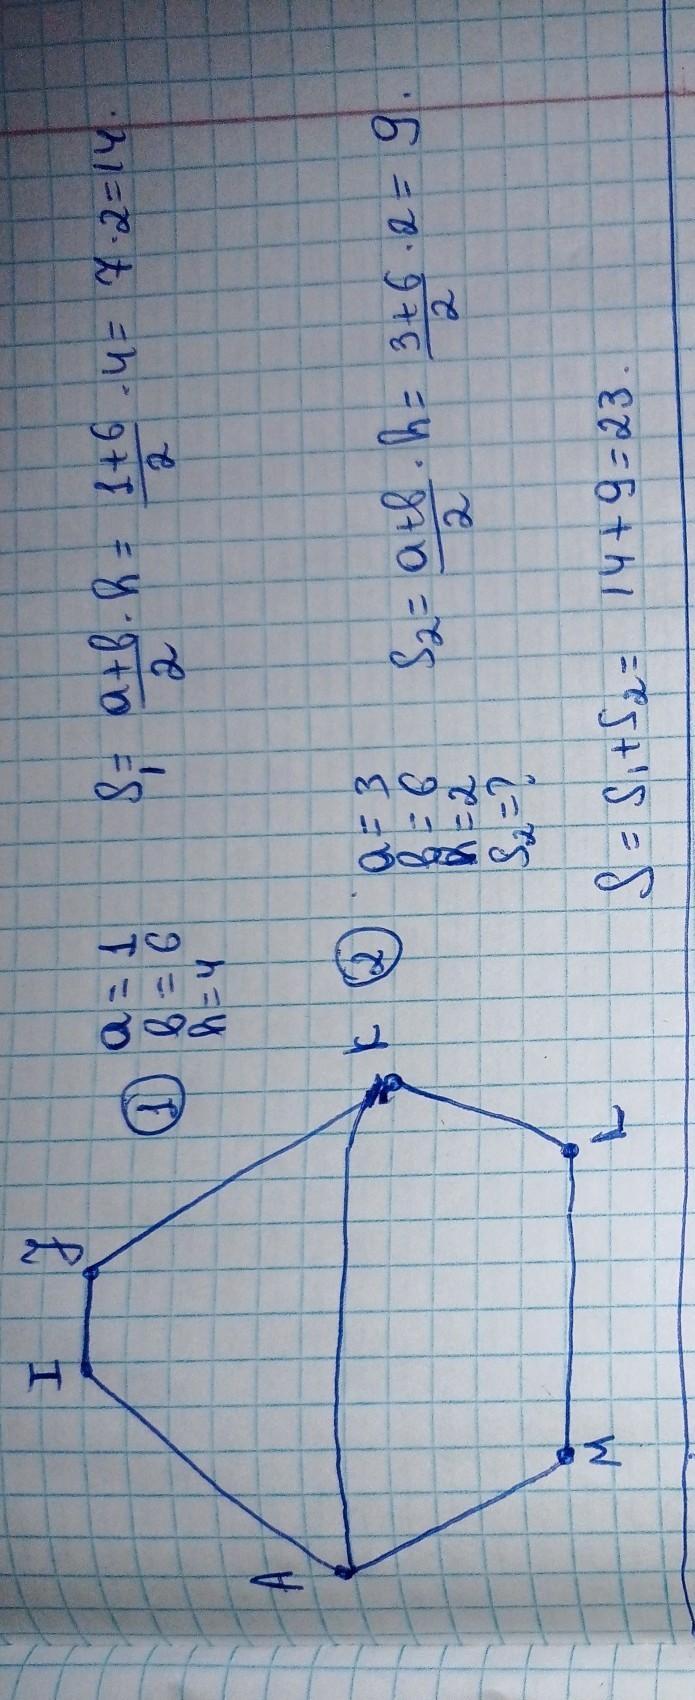 I J
A K
M L
① a = 1
b = 6
h = 4
S₁ = (a+b)/2 · h = (1+6)/2 · 4 = 7 · 2 = 14.
② a = 3
b = 6
h = 2
S₂ = ?
S₂ = (a+b)/2 · h = (3+6)/2 · 2 = 9.
S = S₁ + S₂ = 14 + 9 = 23.